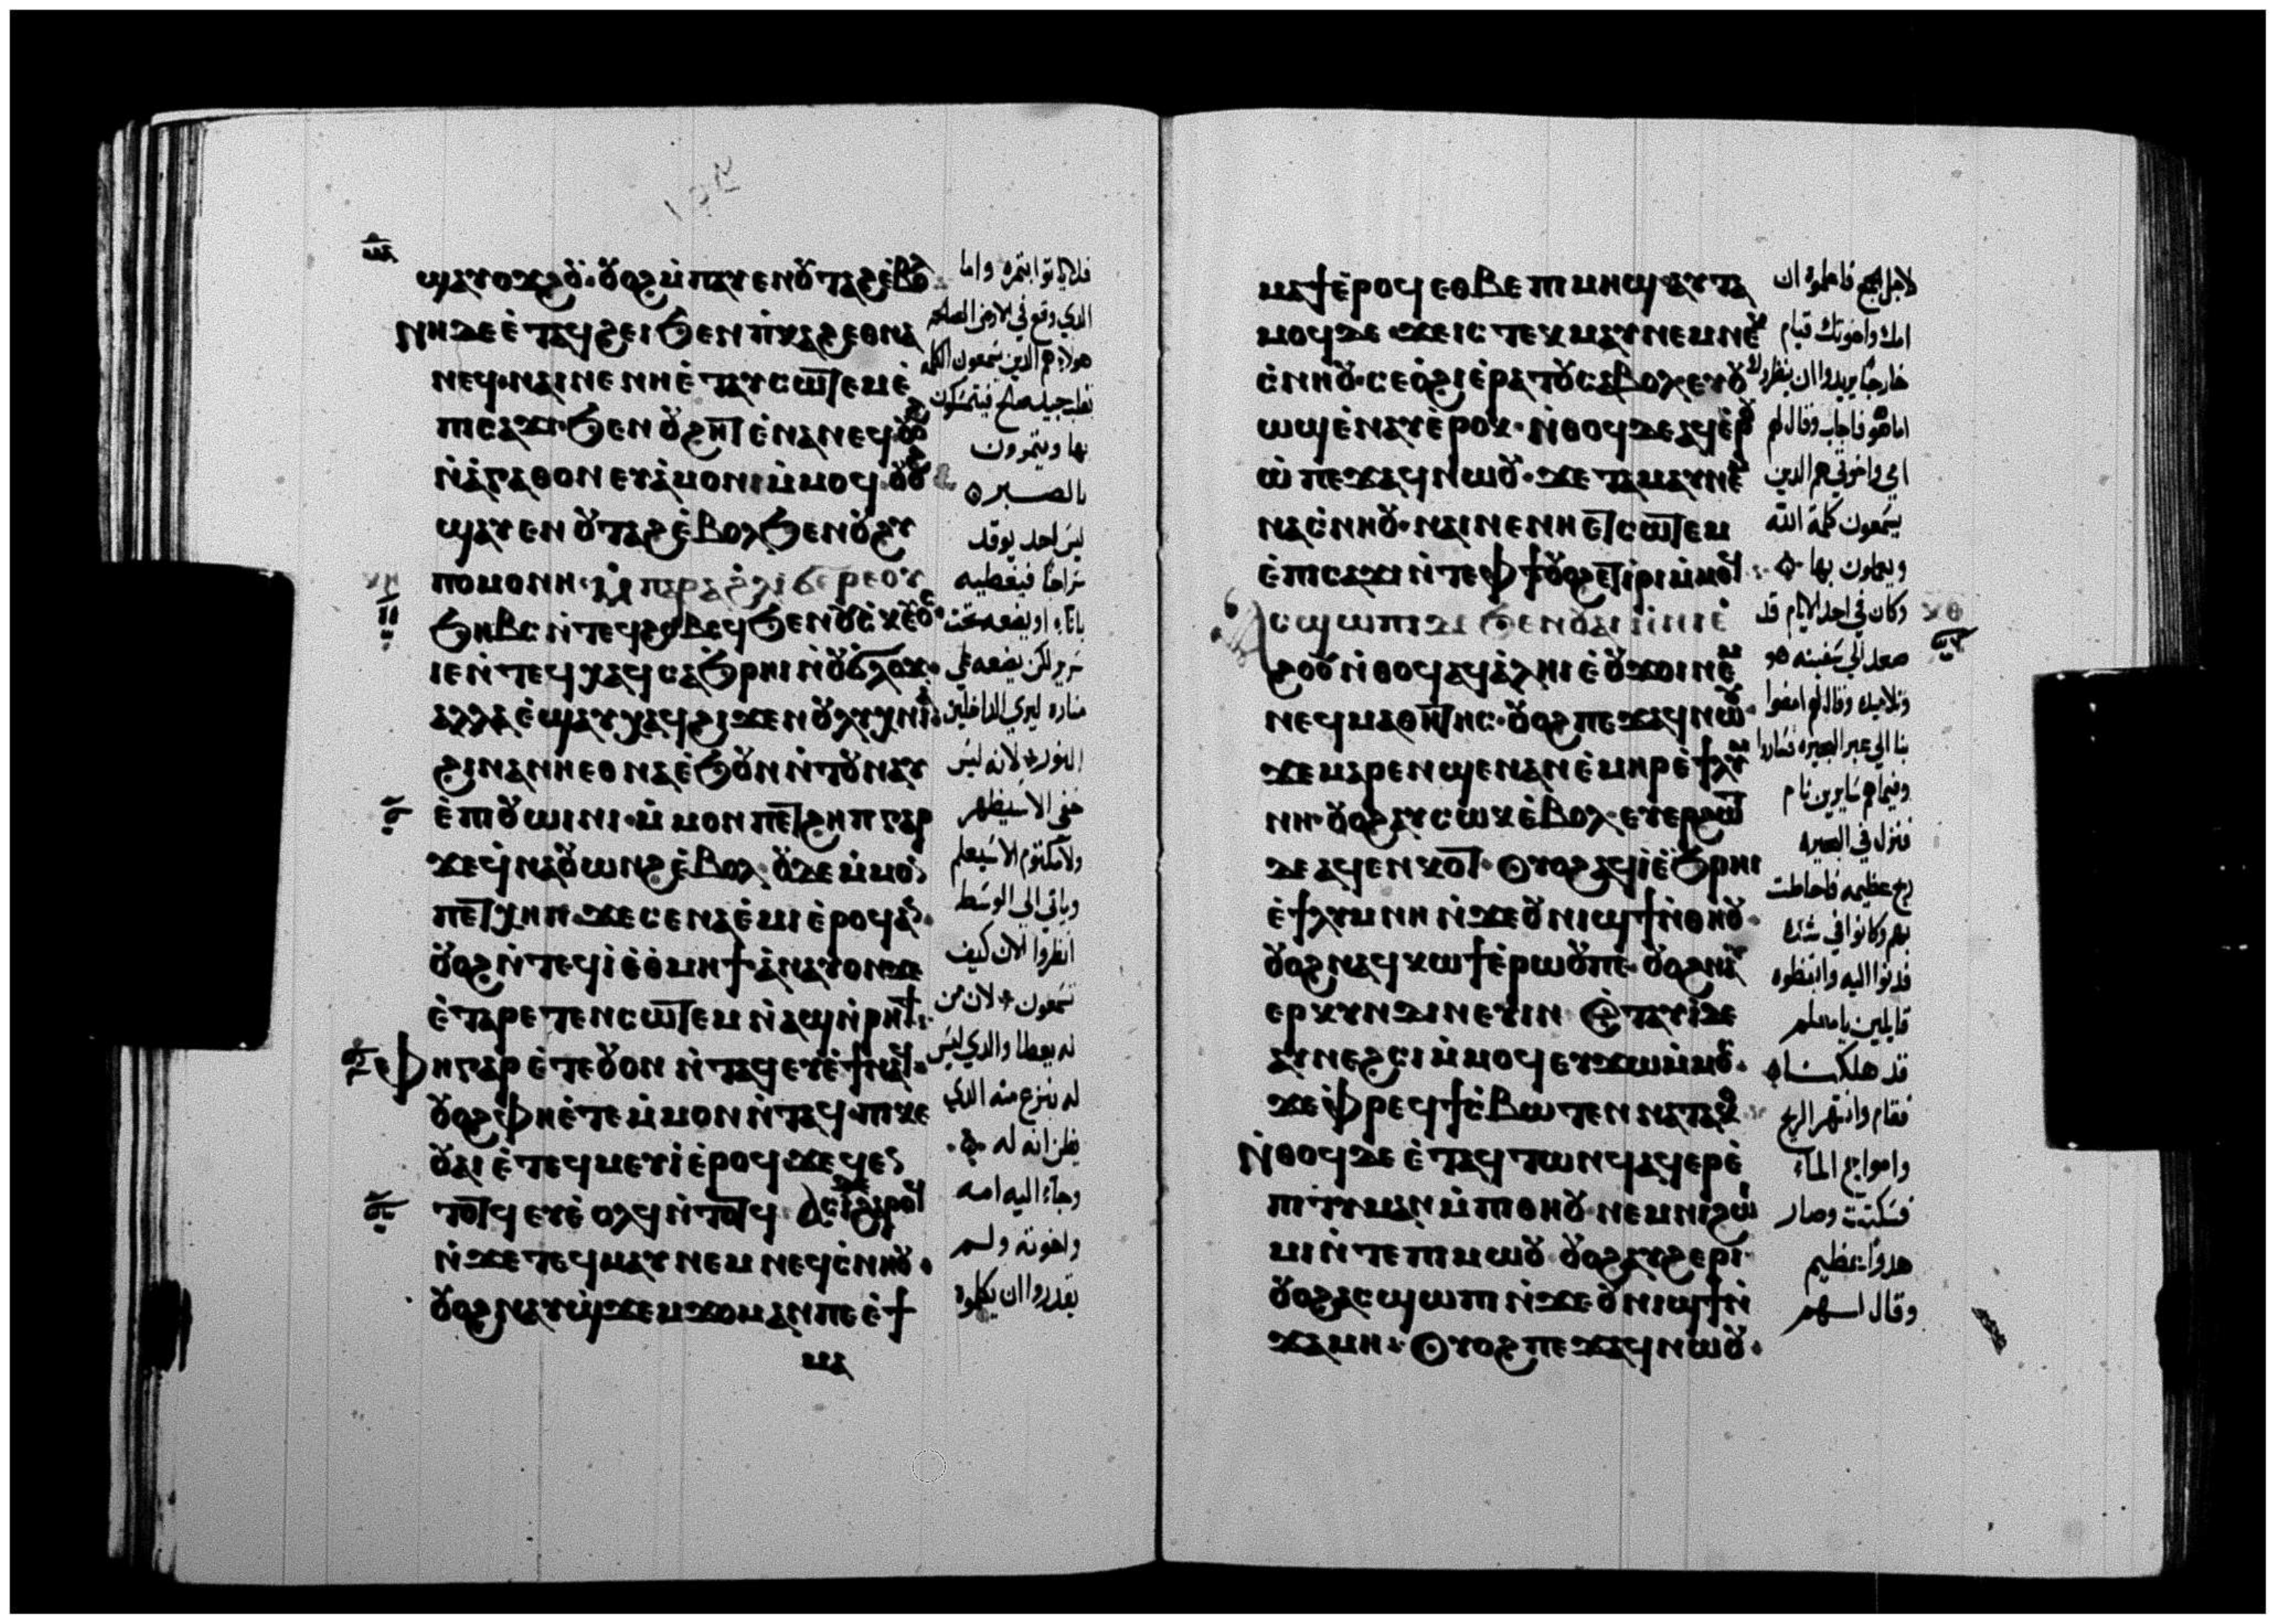 ϣⲁⲩⲟϫϩⲟⲩ· ⲟⲩⲟϩ ⲙ̇ⲡⲁⲩⲉⲛⲟⲩⲧⲁϩ ⲉ̇ⲃⲟⲗ
ⲛⲏ ⲇⲉ ⲉ̇ⲧⲁϥϩⲉⲓ ϧⲉⲛ ⲡⲕⲁϩⲓ ⲉⲑⲛⲁ
ⲛⲉϥ· ⲛⲁⲓ ⲛⲉ ⲛⲏ ⲉ̇ⲧⲁⲩⲥⲱⲧⲉⲙ ⲉ̇
ⲡⲓⲥⲁϫⲓ ϧⲉⲛ ⲟⲩϩⲏⲧ ⲉ̇ⲛⲁⲛⲉϥ· ⲟⲩⲟϩ
ⲛ̇ⲁ̇ⲅⲁⲑⲟⲛ ⲉⲩⲁ̇ⲙⲟⲛⲓ ⲙ̇ⲙⲟϥ· ⲟⲩⲟϩ
ϣⲁⲩⲉⲛⲟⲩⲧⲁϩ ⲉ̇ⲃⲟⲗ ϧⲉⲛ ⲟⲩϩⲩ
ⲡⲟⲙⲟⲛⲏ· ⲙ̇ⲡⲁⲣⲉ ϩ̇ⲗⲓ ϭⲉⲣⲉ ⲟⲩ
ϧⲏⲃⲥ ⲛ̇ⲧⲉϥϩⲟⲃⲥϥ ϧⲉⲛ ⲟⲩⲥ̇ⲕⲉⲩⲟⲥ·
ⲓⲉ ⲛ̇ⲧⲉϥⲭⲁϥ ⲥⲁϧⲣⲏⲓ ⲛ̇ⲟⲩϭⲗⲟϫ·
ⲁⲗⲗⲁ ⲉ̇ϣⲁⲩⲭⲁϥ ϩⲓϫⲉⲛ ⲟⲩⲗⲩⲭⲛⲓⲁ̇
ϩⲓⲛⲁ ⲛⲏⲉⲑⲛⲁⲉ̇ϧⲟⲩⲛ ⲛ̇ⲧⲟⲩⲛⲁⲩ
ⲉ̇ⲡⲓⲟⲩⲱⲓⲛⲓ· ⲙ̇ⲙⲟⲛ ⲡⲉⲧϩⲏⲡ ⲅⲁⲣ
ϫⲉ ϥ̇ⲛⲁⲟⲩⲱⲛϩ ⲉ̇ⲃⲟⲗ· ⲟⲩⲇⲉ ⲙ̇ⲙⲟⲛ
ⲡⲉⲧⲭⲏⲡ· ϫⲉ ⲥⲉⲛⲁⲉ̇ⲙⲓ ⲉ̇ⲣⲟϥ ⲁⲛ·
ⲟⲩⲟϩ ⲛ̇ⲧⲉϥⲓ̇ ⲉ̇ⲑⲙⲏϯ· ⲁ̇ⲛⲁⲩ ⲟⲩⲛ ϫⲉ
ⲉ̇ⲧⲁⲣⲉⲧⲉⲛⲥⲱⲧⲉⲙ ⲛ̇ⲁϣ ⲛ̇ⲣⲏϯ·
ⲫⲏ ⲅⲁⲣ ⲉ̇ⲧⲉ ⲟⲩⲟⲛ ⲛ̇ⲧⲁϥ ⲉⲩⲉ̇ϯ ⲛⲁϥ·
ⲟⲩⲟϩ ⲫⲏ ⲉ̇ⲧⲉ ⲙ̇ⲙⲟⲛ ⲛ̇ⲧⲁϥ· ⲡⲓⲕⲉ
ⲟⲩⲁⲓ ⲉ̇ⲧⲉϥⲙⲉⲩⲓ̇ ⲉ̇ⲣⲟϥ ϫⲉ ϥⲉⲛ
ⲧⲟⲧϥ ⲉⲩⲉ̇ⲟⲗϥ ⲛ̇ⲧⲟⲧϥ ⲁⲥⲓ̇ ⲇⲉ ϩⲁⲣⲟϥ
ⲛ̇ϫⲉ ⲧⲉϥⲙⲁⲩ ⲛⲉⲙ ⲛⲉϥⲥ̇ⲛⲏⲟⲩ·
ⲟⲩⲟϩ ⲛⲁⲩϣ̇ϫⲉⲙϫⲟⲙ ⲁⲛ ⲡⲉ ⲉ̇ϯ
ⲙⲁ
فلا ياتوا بثمره واما
الذي وقع في الارض الصالحه
هولاء هم الذين يسمعون الكلمه
بقلب جيد صالح فيتمسكون
بها ويثمرون
بالصبر
ليس احد يوقد
سراجًا فيغطيه
باناء او يضعه تحت
سرير لكن يضعه علي
مناره ليري الداخلين
النور لانه ليس
خفي الا سيظهر
ولا مكتوم الا سيعلم
وياتي الي الوسط
انظروا الان كيف
تسمعون لان من
له يعطا والذي ليس
له ينزع منه الذي
يظن انه له
وجاء اليه امه
واخوته ولم
يقدروا ان يكلموه
ⲙⲁϯ ⲉ̇ⲣⲟϥ ⲉⲑⲃⲉ ⲡⲓⲙⲏϣ ⲁⲩⲧⲁ
ⲙⲟϥ ⲇⲉ· ϫⲉ ⲓⲥ ⲧⲉⲕⲙⲁⲩ ⲛⲉⲙ ⲛⲉⲕ
ⲥ̇ⲛⲏⲟⲩ· ⲥⲉⲟ̇ϩⲓ ⲉ̇ⲣⲁⲧⲟⲩ ⲥⲁⲃⲟⲗ ⲉⲩⲟⲩ
ⲱϣ ⲉ̇ⲛⲁⲩ ⲉ̇ⲣⲟⲕ· ⲛ̇ⲑⲟϥ ⲇⲉ ⲁϥⲉⲣⲟⲩ
ⲱ̇ ⲡⲉϫⲁϥ ⲛⲱⲟⲩ· ϫⲉ ⲧⲁⲙⲁⲩ ⲛⲉⲙ
ⲛⲁⲥ̇ⲛⲏⲟⲩ· ⲛⲁⲓ ⲛⲉ ⲛⲏⲉⲧⲥⲱⲧⲉⲙ
ⲉ̇ⲡⲓⲥⲁϫⲓ ⲛ̇ⲧⲉ ⲫϯ ⲟⲩⲟϩ ⲉⲧⲓⲣⲓ ⲙ̇ⲙⲟϥ
ⲁⲥϣⲱⲡⲓ ⲇⲉ ϧⲉⲛ ⲟⲩⲁⲓ ⲛ̇ⲛⲓⲉ̇
ϩⲟⲟⲩ ⲛ̇ⲑⲟϥ ⲁϥⲁ̇ⲗⲏⲓ ⲉ̇ⲟⲩϫⲟⲓ ⲛⲉⲙ
ⲛⲉϥⲙⲁⲑⲏⲧⲏⲥ· ⲟⲩⲟϩ ⲡⲉϫⲁϥ ⲛⲱⲟⲩ·
ϫⲉ ⲙⲁⲣⲉⲛϣⲉⲛⲁⲛ ⲉ̇ⲙⲏⲣ ⲉ̇ϯⲗⲩⲙ
ⲛⲏ· ⲟⲩⲟϩ ⲁⲩⲥⲱⲕ ⲉ̇ⲃⲟⲗ· ⲉⲩⲉⲣϩⲱⲧ
ⲇⲉ ⲁϥⲉⲛⲕⲟⲧ· ⲟⲩⲟϩ ⲁϥⲓ̇ ⲉ̇ϧⲣⲏⲓ
ⲉ̇ϯⲗⲩⲙⲛⲏ ⲛ̇ϫⲉ ⲟⲩⲛⲓϣϯ ⲛ̇ⲑⲏⲟⲩ·
ⲟⲩⲟϩ ⲛⲁϥⲕⲱϯ ⲉ̇ⲣⲱⲟⲩ ⲡⲉ· ⲟⲩⲟϩ ⲛⲁⲩ
ⲉⲣⲕⲩⲛⲇⲓⲛⲉⲩⲓⲛ ⲉ̇ⲧⲁⲩⲓ̇ ⲇⲉ
ⲁⲩⲛⲉϩⲥⲓ ⲙ̇ⲙⲟϥ ⲉⲩϫⲱ ⲙ̇ⲙⲟⲥ·
ϫⲉ ⲫⲣⲉϥϯⲥ̇ⲃⲱ ⲧⲉⲛⲛⲁⲧⲁⲕⲟ
ⲛ̇ⲑⲟϥ ⲇⲉ ⲉ̇ⲧⲁϥⲧⲱⲛϥ ⲁϥⲉⲣⲉ̇
ⲡⲓⲧⲩⲙⲁⲛ ⲙ̇ⲡⲓⲑⲏⲟⲩ· ⲛⲉⲙ ⲛⲓϩⲱⲓ
ⲙⲓ ⲛ̇ⲧⲉ ⲡⲓⲙⲱⲟⲩ ⲟⲩⲟϩ ⲁⲩϩⲉⲣⲓ·
ⲟⲩⲟϩ ⲁⲥϣⲱⲡⲓ ⲛ̇ϫⲉ ⲟⲩⲛⲓϣϯ ⲛ̇
ϫⲁⲙⲏ· ⲟⲩⲟϩ ⲡⲉϫⲁϥ ⲛⲱⲟⲩ·
لاجل الجمع فاعلموه ان
امك واخوتك قيام
خارجًا يريدوا ان ينظروك
اما هو فاجاب وقال لهم
امي واخوتي هم الذين
يسمعون كلمة الله
ويعملون بها
وكان في احد الايام قد
صعد الي سفينه هو
وتلاميذه وقال لهم امضوا
بنا الي عبر البحيره فساروا
وفيما هم سايرين نام
فنزل في البحيره
ريح عظيمه فاحاطت
بهم وكانوا في شده
فدنوا اليه وايقظوه
قايلين يا معلم
قد هلكنا
فقام وانتهر الريح
وامواج الماء
فسكتت وصار
هدوًا عظيم
وقال لهم